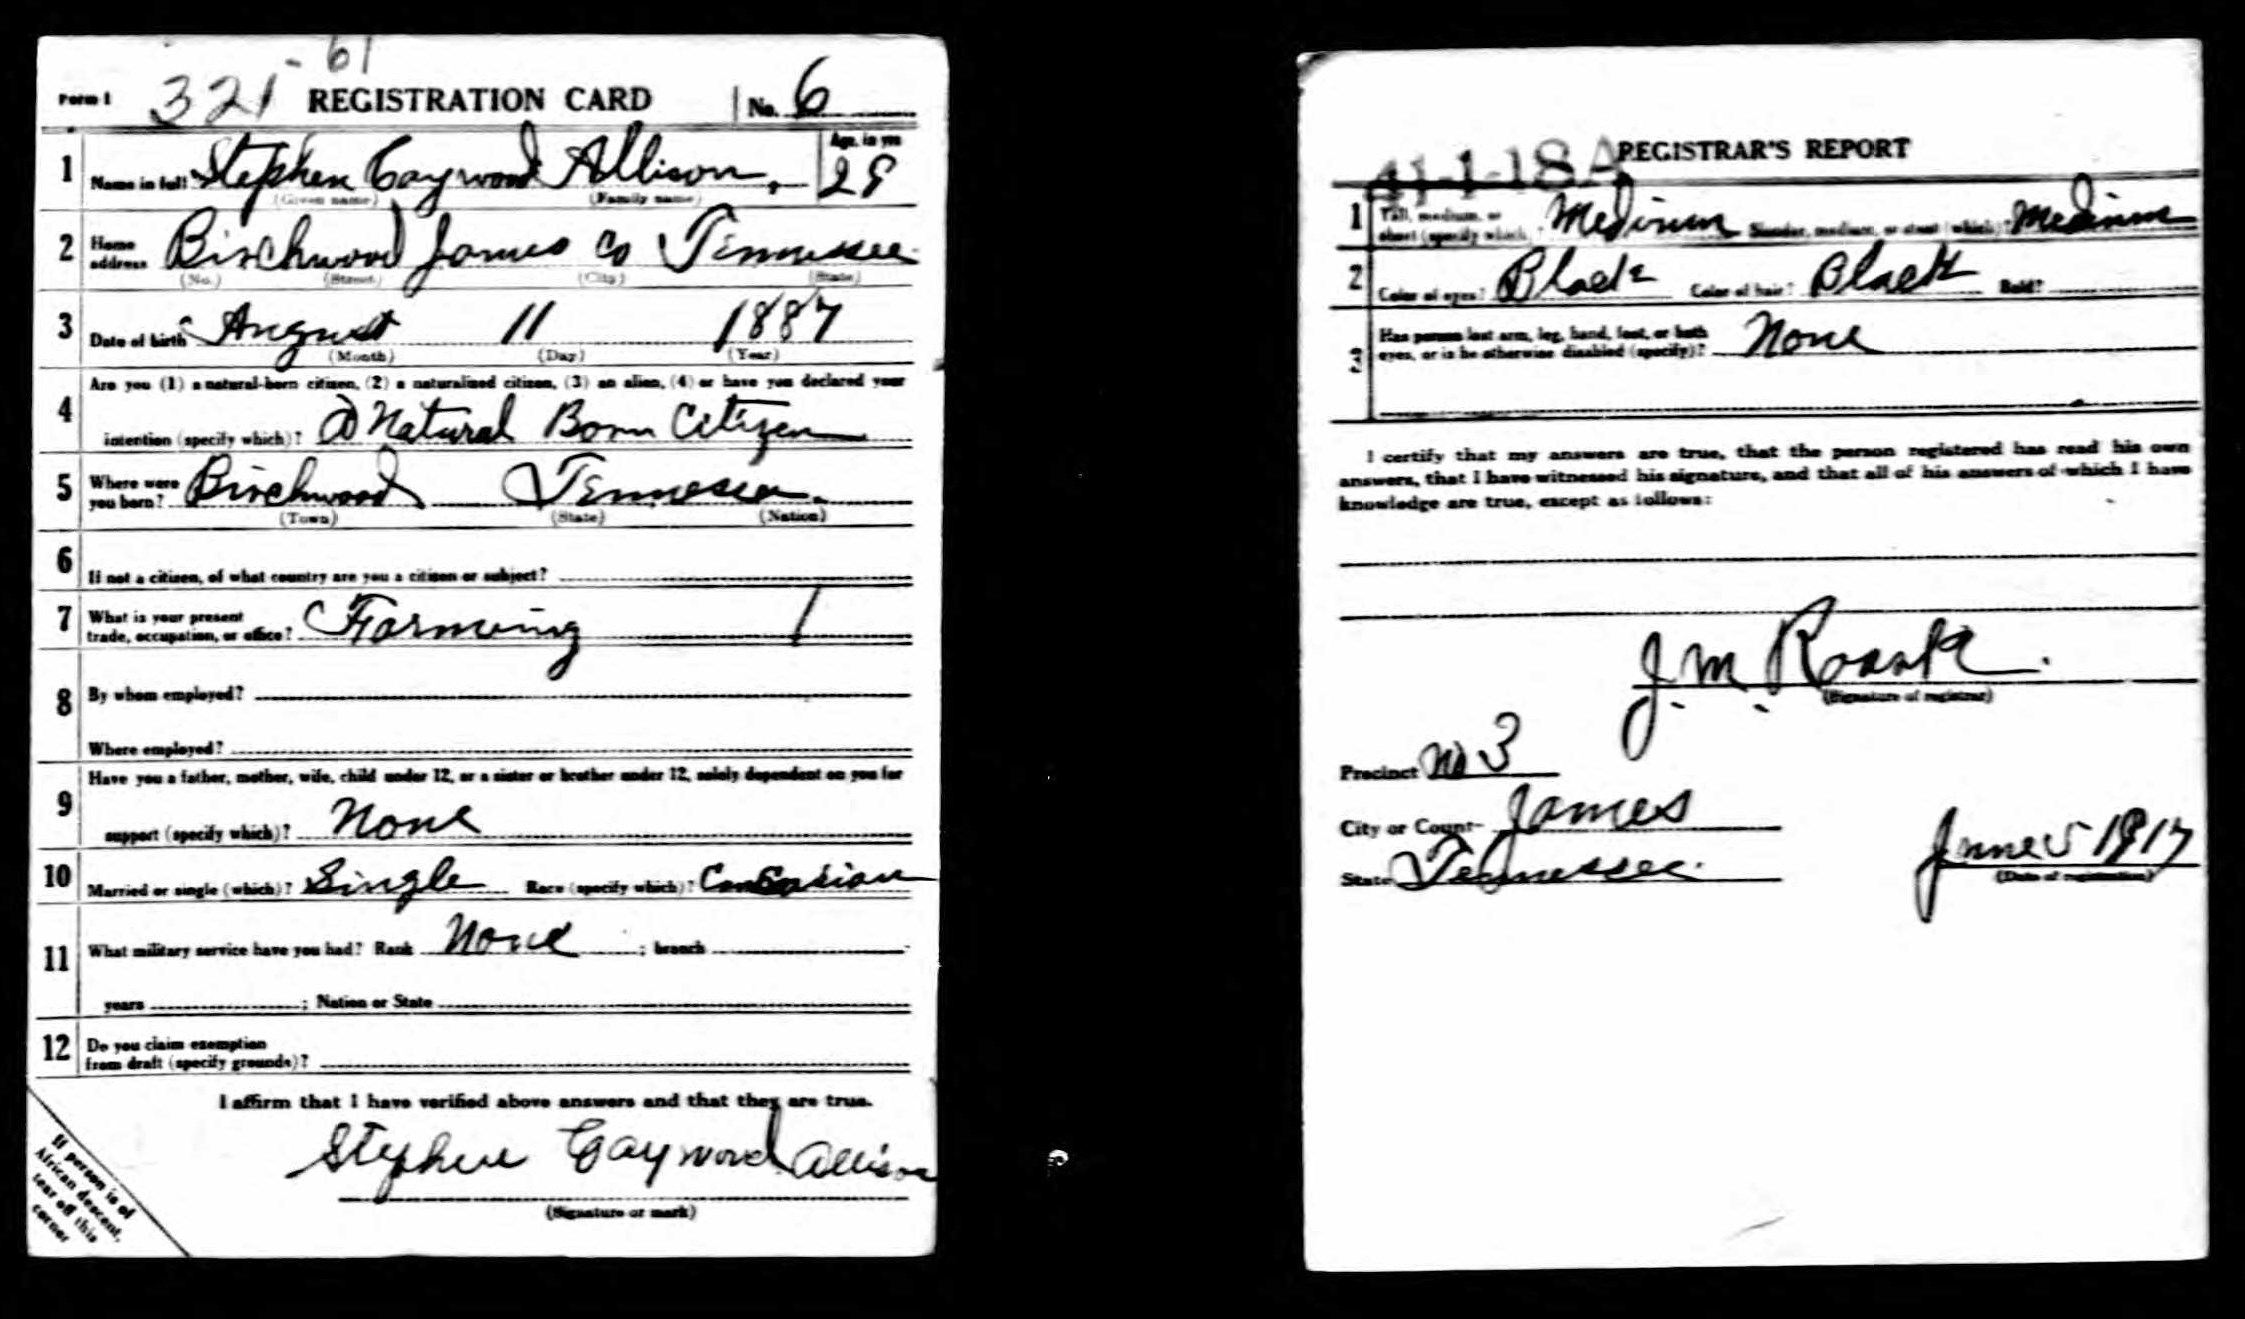 61
Form 1 321- REGISTRATION CARD No. 6
1 Name in full Stephen Caywood Allison, Age, in yrs 29
(Given name) (Family name)
2 Home address Birchwood James Co Tennessee
(No.) (Street) (City) (State)
3 Date of birth August 11 1887
(Month) (Day) (Year)
4 Are you (1) a natural-born citizen, (2) a naturalized citizen, (3) an alien, (4) or have you declared your
intention (specify which)? A Natural Born Citizen
5 Where were you born? Birchwood Tennessee
(Town) (State) (Nation)
6 If not a citizen, of what country are you a citizen or subject?
7 What is your present
trade, occupation, or office? Farming 1
8 By whom employed?
Where employed?
9 Have you a father, mother, wife, child under 12, or a sister or brother under 12, solely dependent on you for
support (specify which)? None
10 Married or single (which)? Single Race (specify which)? Caucasian
11 What military service have you had? Rank None ; branch
years ; Nation or State
12 Do you claim exemption
from draft (specify grounds)?
I affirm that I have verified above answers and that they are true.
Stephen Caywood Allison
(Signature or mark)
If person is of
African descent,
tear off this
corner
41-1-18 A REGISTRAR'S REPORT
1 Tall, medium, or
short (specify which)? Medium Slender, medium, or stout (which)? Medium
2 Color of eyes? Black Color of hair? Black Bald?
3 Has person lost arm, leg, hand, foot, or both
eyes, or is he otherwise disabled (specify)? None
I certify that my answers are true, that the person registered has read his own
answers, that I have witnessed his signature, and that all of his answers of which I have
knowledge are true, except as follows:
J M Roark.
(Signature of registrar)
Precinct No 3
City or County James
State Tennessee.
June 5 1917
(Date of registration)